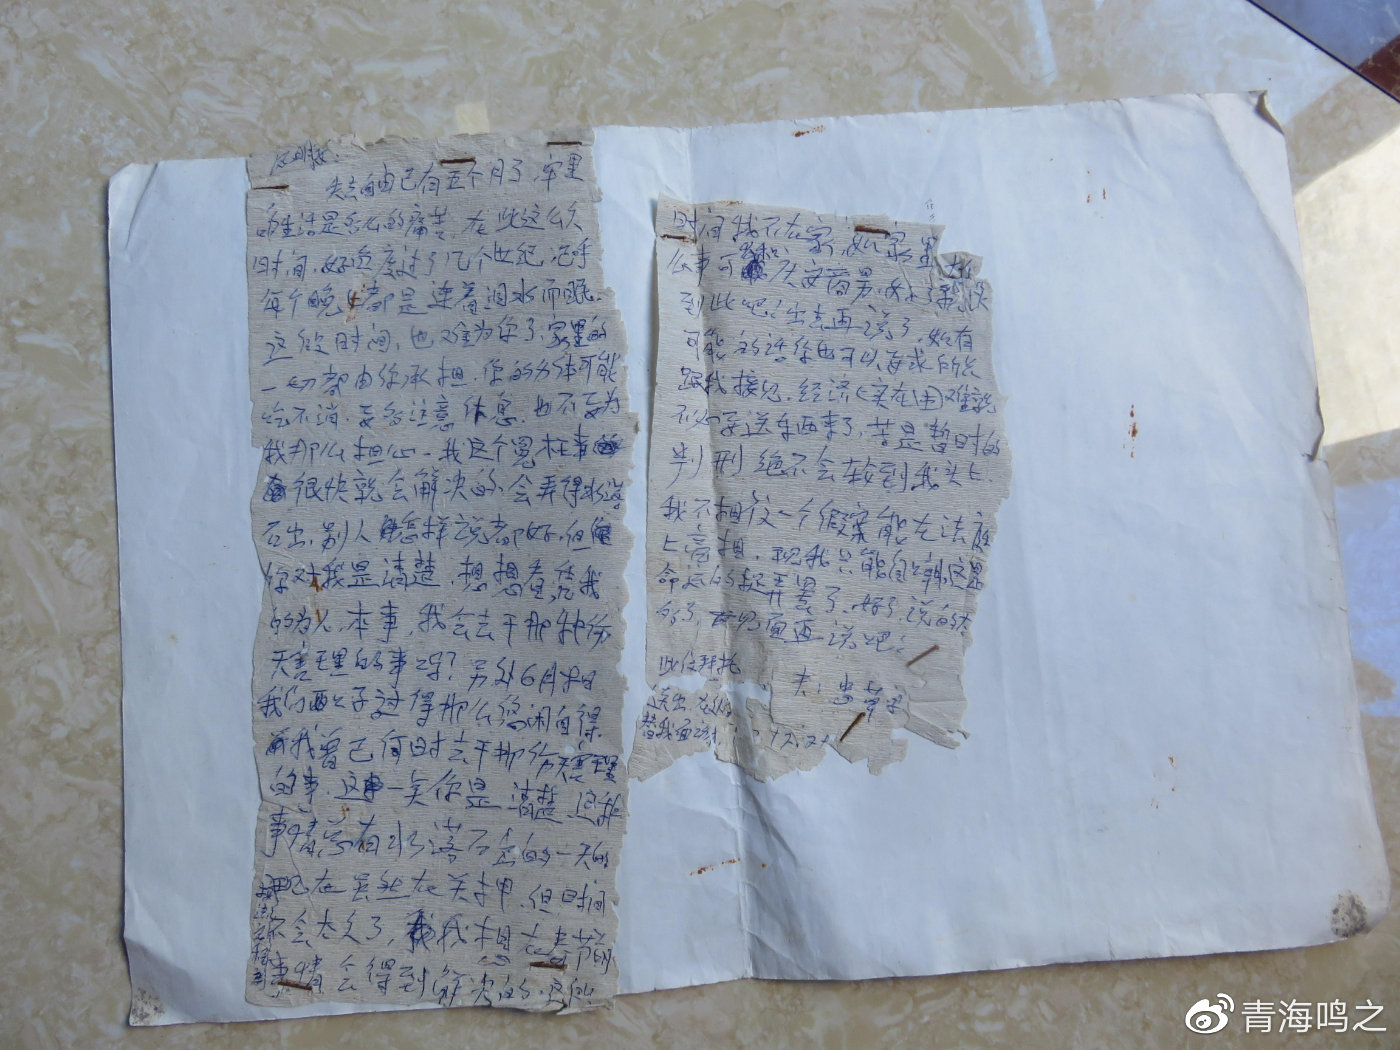 失去自由已有五个月了,牢里
的生活是多么的痛苦,在此这么久
时间,好象度过了几个世纪,几乎
每个晚上都是连着泪水而眠.
这段时间,也难为你了,家里的
一切都由你承担,你的身体可能
吃不消,要多注意休息,也不要为
我那么担心.我这个冤枉事
很快就会解决的,会弄得水落
石出,别人怎样说都好,但
你对我是清楚,想想看凭我
的为人,本事,我会去干那种伤
天害理的事吗?另外6月 日
我们两公子过得那么悠闲自得.
我曾己何时去干那伤天害理
的事.这一关你是清楚 这
事情总有水落石出的一天的
现在虽然在关押,但时间
不会太久了,我相 春节前
事情会得到解决的.
时间我不在家,如家里
么事可和 商量,好了
到此吧!出去再说了,如有
可能的话你也可以要求所长
跟我接见.经济上实在困难就
不必要送东西来了,苦是暂时的
判刑绝不会转到我头上.
我不相信一个假案能在法庭
上亮相.现我只能自 这是
命运的捉弄罢了.好了说的太
多了,有 面再谈吧!
此信拜托
送出,
替我面谢
夫:
12.2
青海鸣之